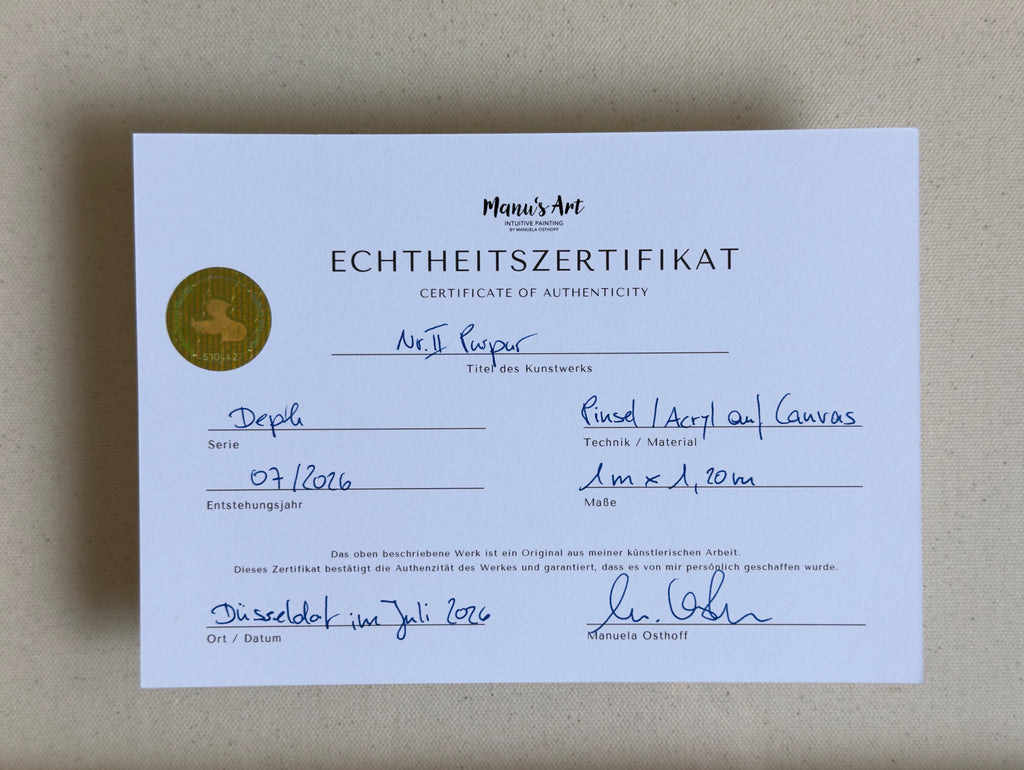 Manu's Art
INTUITIVE PAINTING
BY MANUELA OSTHOFF
ECHTHEITSZERTIFIKAT
CERTIFICATE OF AUTHENTICITY
Nr. II Purpur
Titel des Kunstwerks
Depth
Serie
Pinsel / Acryl auf Canvas
Technik / Material
07/2026
Entstehungsjahr
1m x 1,20m
Maße
Das oben beschriebene Werk ist ein Original aus meiner künstlerischen Arbeit.
Dieses Zertifikat bestätigt die Authenzität des Werkes und garantiert, dass es von mir persönlich geschaffen wurde.
Düsseldorf im Juli 2026
Ort / Datum
M. Osthoff
Manuela Osthoff
510442